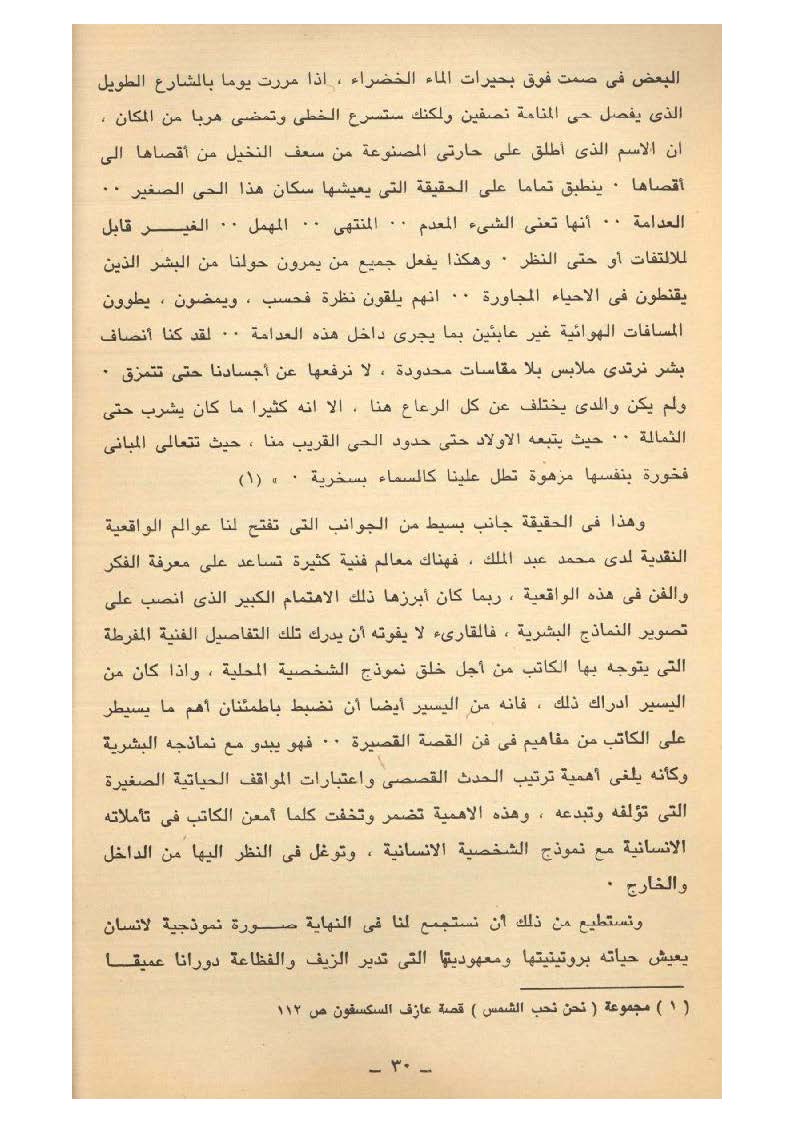 البعض فى صمت فوق بحيرات الماء الخضراء ، اذا مررت يوما بالشارع الطويل
الذى يفصل حى المنامة نصفين ولكنك ستسرع الخطى وتمضى هربا من المكان ،
ان الاسم الذى أطلق على حارتى المصنوعة من سعف النخيل من أقصاها الى
أقصاها ٠ ينطبق تماما على الحقيقة التى يعيشها سكان هذا الحى الصغير ٠٠
العدامة ٠٠ أنها تعنى الشىء المعدم ٠٠ المنتهى ٠٠ المهمل ٠٠ الغيـــر قابل
للالتفات أو حتى النظر ٠ وهكذا يفعل جميع من يمرون حولنا من البشر الذين
يقنطون فى الاحياء المجاورة ٠٠ انهم يلقون نظرة فحسب ، ويمضون ، يطوون
المسافات الهوائية غير عابئين بما يجرى داخل هذه العدامة ٠٠ لقد كنا أنصاف
بشر نرتدى ملابس بلا مقاسات محدودة ، لا نرفعها عن أجسادنا حتى تتمزق ٠
ولم يكن والدى يختلف عن كل الرعاع هنا ، الا انه كثيرا ما كان يشرب حتى
الثمالة ٠٠ حيث يتبعه الاولاد حتى حدود الحى القريب منا ، حيث تتعالى المبانى
فخورة بنفسها مزهوة تطل علينا كالسماء بسخرية ٠ » (١)
وهذا فى الحقيقة جانب بسيط من الجوانب التى تفتح لنا عوالم الواقعية
النقدية لدى محمد عبد الملك ، فهناك معالم فنية كثيرة تساعد على معرفة الفكر
والفن فى هذه الواقعية ، ربما كان أبرزها ذلك الاهتمام الكبير الذى انصب على
تصوير النماذج البشرية ، فالقارىء لا يفوته أن يدرك تلك التفاصيل الفنية المفرطة
التى يتوجه بها الكاتب من أجل خلق نموذج الشخصية المحلية ، واذا كان من
اليسير ادراك ذلك ، فانه من اليسير أيضا أن نضبط باطمئنان أهم ما يسيطر
على الكاتب من مفاهيم فى فن القصة القصيرة ٠٠ فهو يبدو مع نماذجه البشرية
وكأنه يلغى أهمية ترتيب الحدث القصصى واعتبارات المواقف الحياتية الصغيرة
التى تؤلفه وتبدعه ، وهذه الاهمية تضمر وتخفت كلما أمعن الكاتب فى تأملاته
الانسانية مع نموذج الشخصية الانسانية ، وتوغل فى النظر اليها من الداخل
والخارج ٠
ونستطيع من ذلك أن نستجمع لنا فى النهاية صـــورة نموذجية لانسان
يعيش حياته بروتينيتها ومعهوديتها التى تدير الزيف والفظاعة دورانا عميقـــا
( ١ ) مجموعة ( نحن نحب الشمس ) قصة عازف السكسفون ص ١١٢
ــ ٣٠ ــ